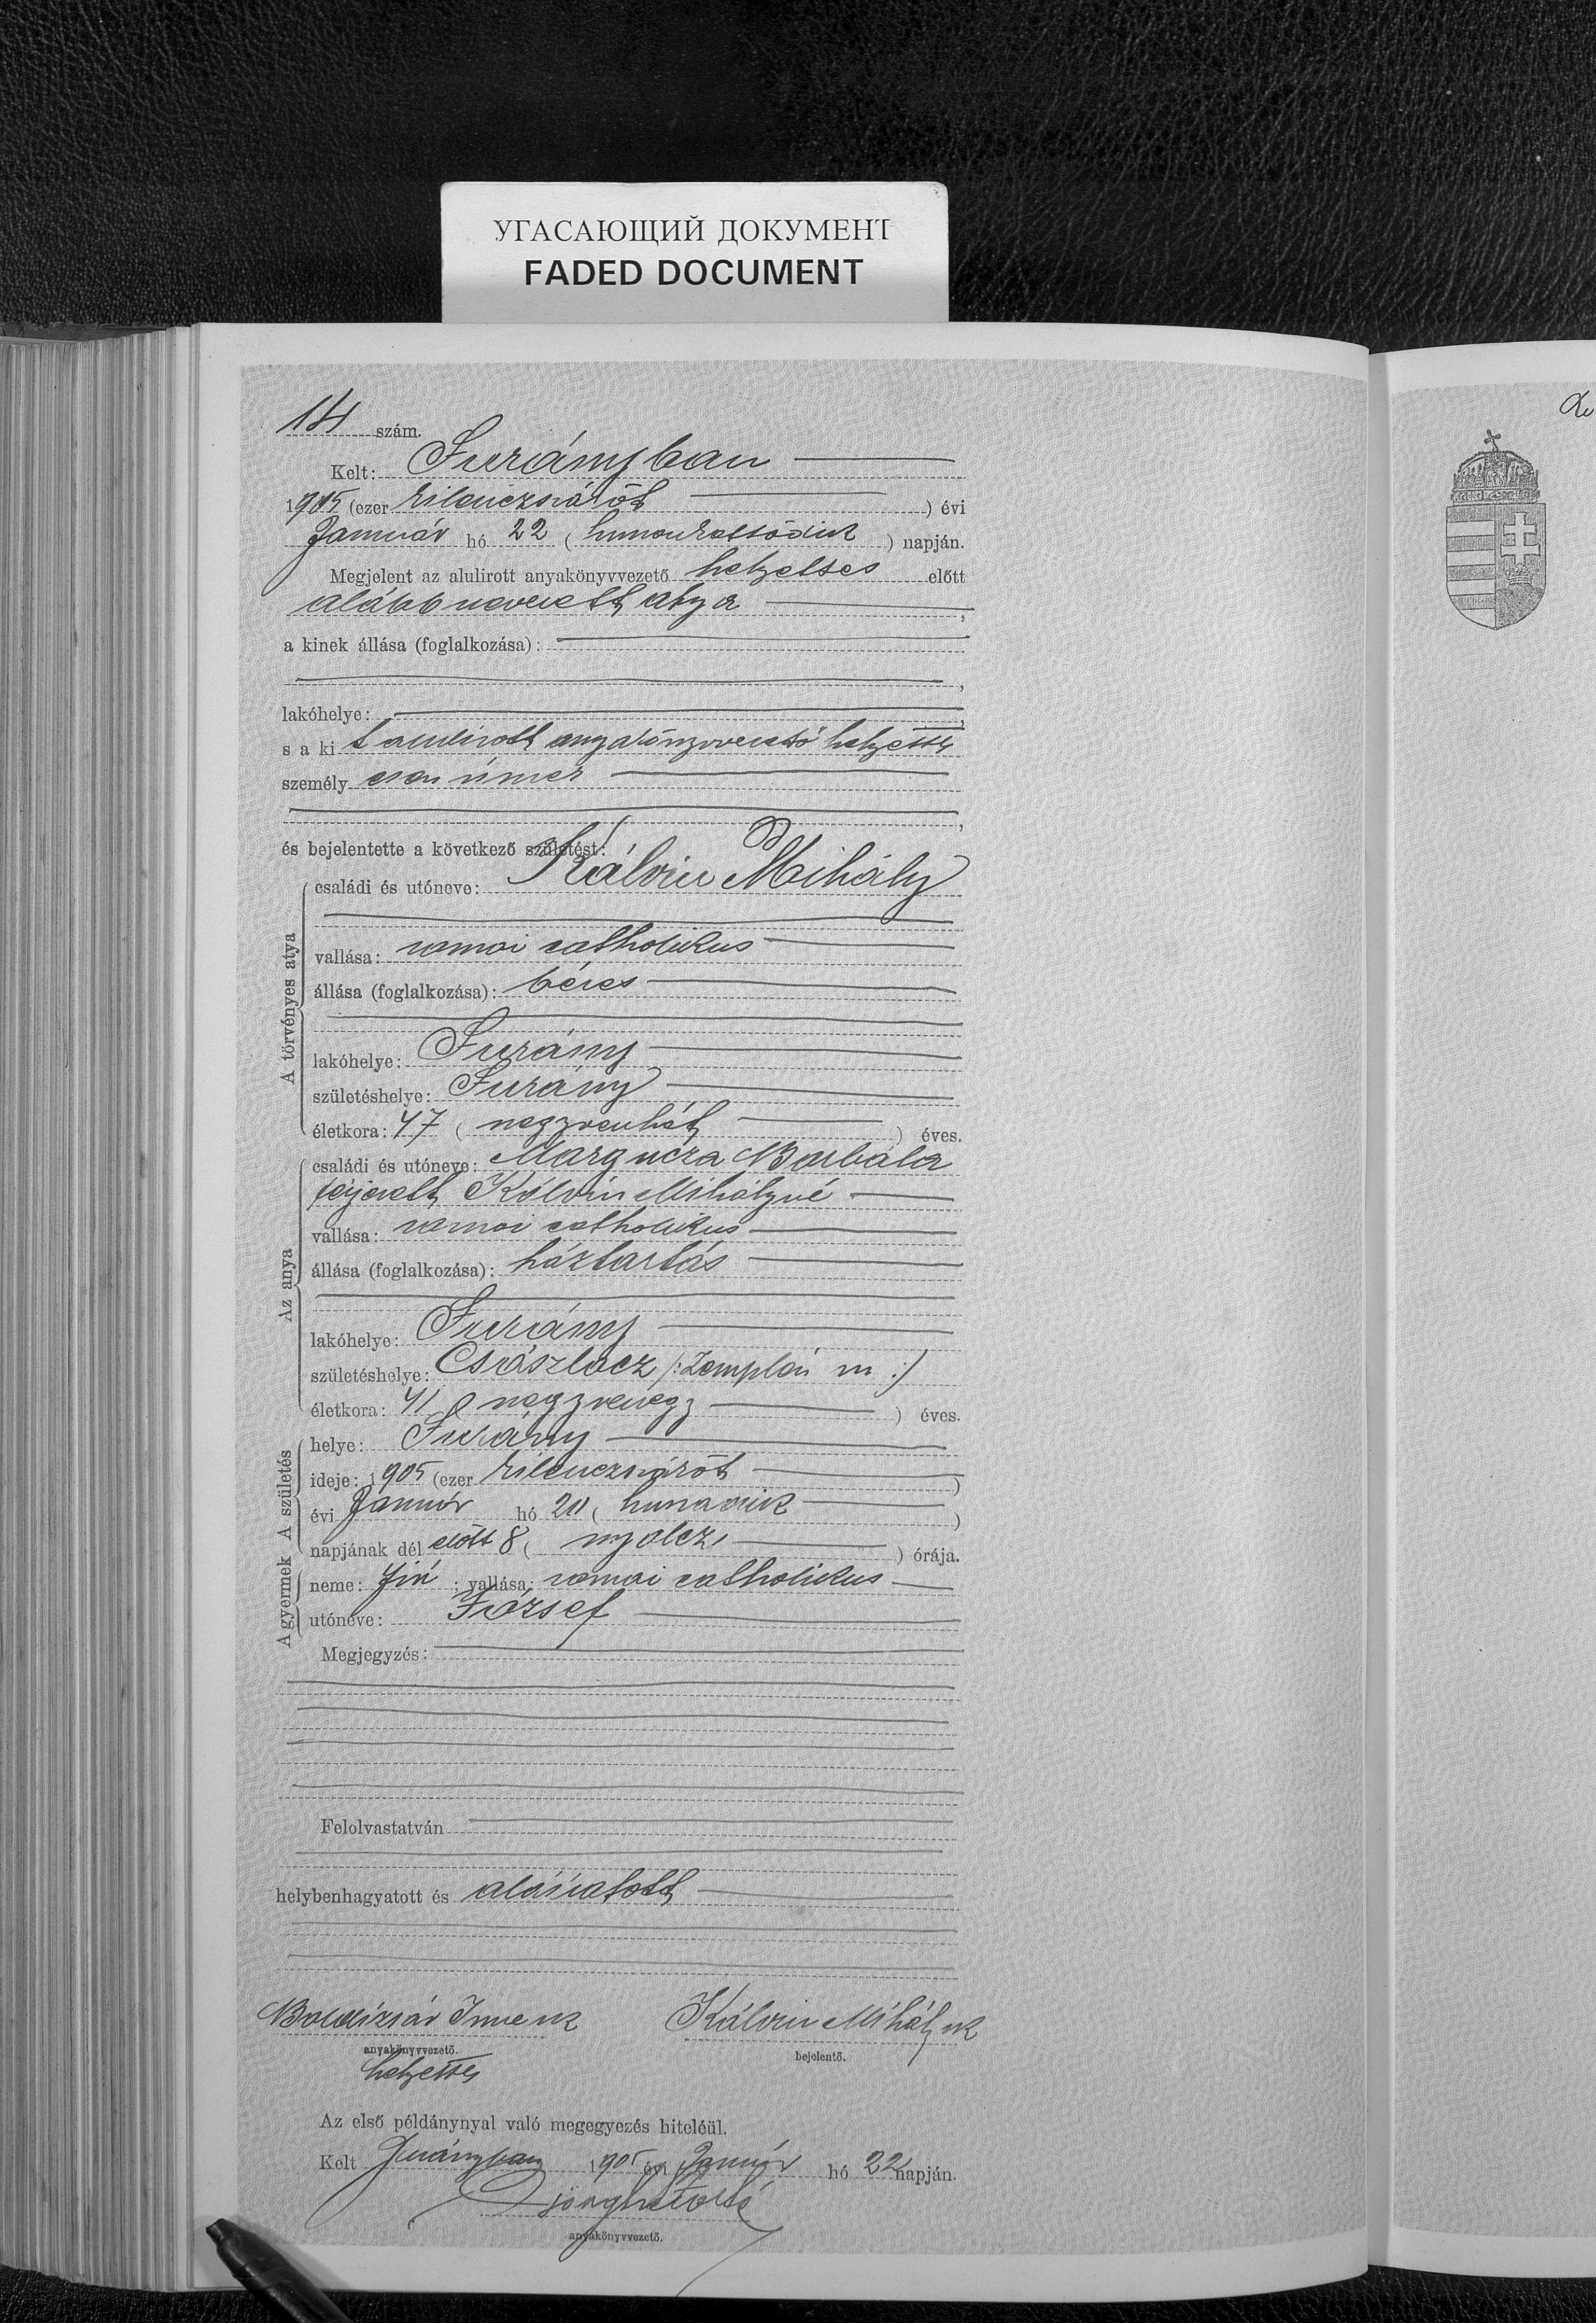 УГАСАЮЩИЙ ДОКУМЕНТ
FADED DOCUMENT
14 szám.
Kelt: Turányban
1905 (ezer kilenczszázöt ) évi
Január hó 22 ( huszonkettödik ) napján.
Megjelent az alulirott anyakönyvvezető helyettes előtt
alább nevezett atya ,
a kinek állása (foglalkozása):
,
lakóhelye: ,
s a ki t alulirott anyakönyvvezető helyettes
személy esen ismer
,
és bejelentette a következő születést:
A törvényes atya
családi és utóneve: Kálvin Mihály
vallása: római catholikus
állása (foglalkozása): béres
lakóhelye: Turány
születéshelye: Turány
életkora: 47 ( negyvenhét ) éves.
Az anya
családi és utóneve: Borbála
férjezett Kálvin Mihályné
vallása: római catholikus
állása (foglalkozása): háztartás
lakóhelye: Turány
születéshelye: /: Zemplén m :/
életkora: 41 ( negyvenegy ) éves.
A gyermek A születés
helye: Turány
ideje: 1905 (ezer kilenczszázöt )
évi Január hó 20 ( huszadik )
napjának dél előtt 8 ( nyolcz ) órája.
neme: fiú ; vallása: római catholikus
utóneve: József
Megjegyzés:
Felolvastatván
helybenhagyatott és aláíratott
Boldizsár Imre sk
Kálvin Mihály sk
anyakönyvvezető.
bejelentő.
helyettes
Az első példánynyal való megegyezés hiteléül.
Kelt Turányban 1905 évi Január hó 22 napján.
anyakönyvvezető.